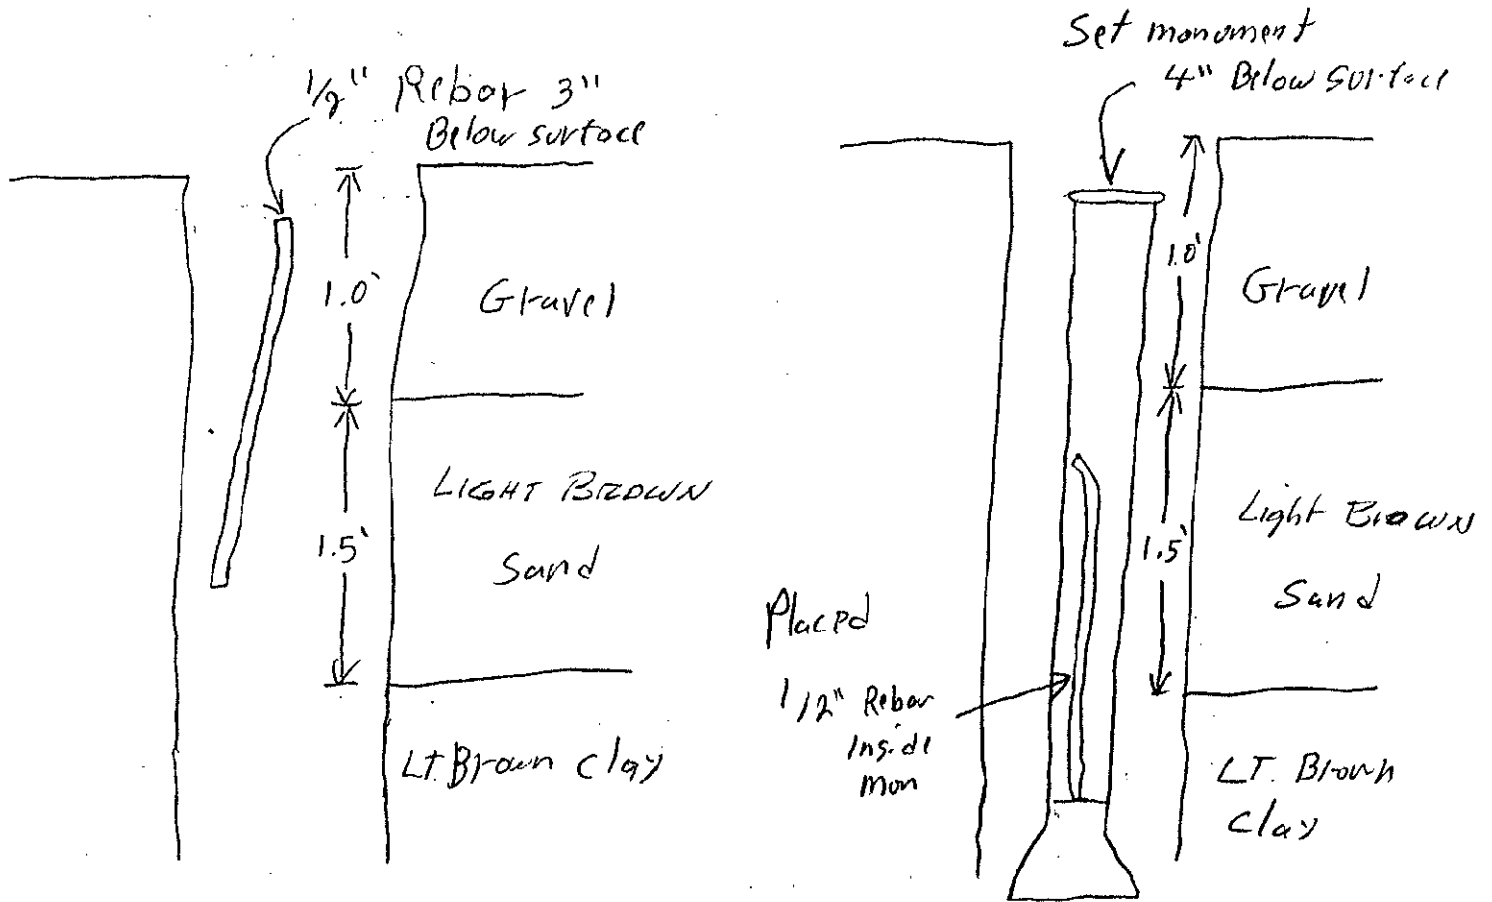 1/2" Rebar 3"
Below surface
1.0'
Gravel
LIGHT BROWN
Sand
1.5'
LT. Brown Clay
Set monument
4" Below Surface
1.0'
Gravel
Light Brown
Sand
1.5'
Placed
1/2" Rebar
Inside
Mon
LT. Brown
Clay